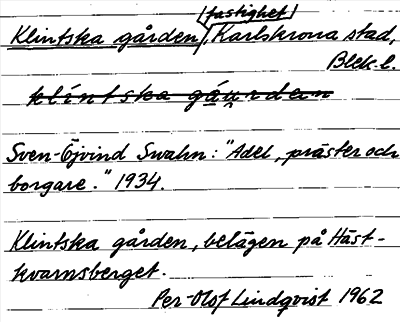 fastighet
Klintska gården, Karlskrona stad,
Blek.l.
klíntska gá̊u̯rden
Sven-Öjvind Swahn: "Adel, präster och
borgare." 1934.
Klintska gården, belägen på Häst-
kvarnsberget.
Per-Olof Lindqvist 1962